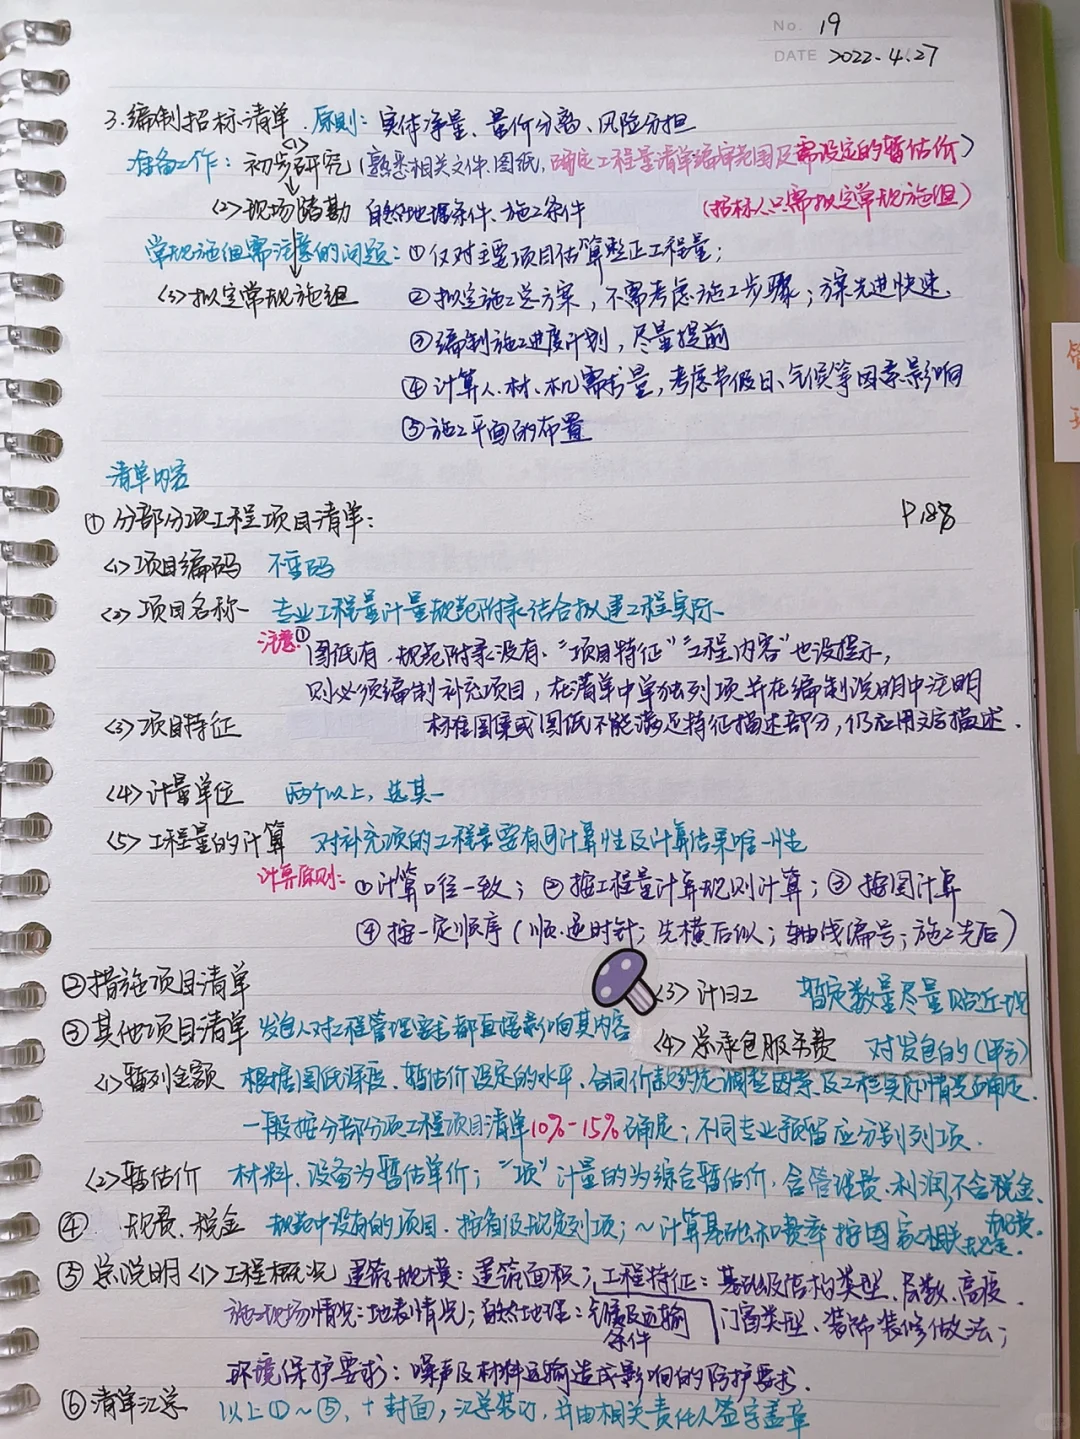 No. 19
DATE 2022.4.27
3.编制招标清单.原则:实体净量、量价分离、风险分担
准备工作:<1>初步研究(熟悉相关文件、图纸,确定工程量清单编审范围及需设定的暂估价)
<2>现场踏勘 自然地理条件、施工条件 (招标人只需拟定常规施组)
常规施组需注意的问题:①仅对主要项目估算整正工程量;
<3>拟定常规施组 ②拟定施工总方案,不需考虑施工步骤;方案先进快速.
③编制施工进度计划,尽量提前
④计算人、材、机需求量,考虑节假日、气候等因素影响
⑤施工平面的布置
清单内容
①分部分项工程项目清单: P188
<1>项目编码 不重码
<2>项目名称 专业工程量计量规范附录结合拟建工程实际
注意①图纸有,规范附录没有、"项目特征""工程内容"也没提示,
则必须编制补充项目,在清单中单独列项并在编制说明中注明
<3>项目特征 标准图集或图纸不能满足特征描述部分,仍应用文字描述.
<4>计量单位 两个以上,选其一
<5>工程量的计算 对补充项的工程量要有可计算性及计算结果唯一性
计算原则:①计算口径一致;②按工程量计算规则计算;③按图计算
④按一定顺序(顺.逆时针;先横后纵;轴线编号;施工先后)
②措施项目清单 <3>计日工 暂定数量尽量贴近现
③其他项目清单 发包人对工程管理要求都直接影响其内容 <4>总承包服务费 对发包的(甲方)
<1>暂列金额 根据图纸深度、暂估价设定的水平、合同价款约定调整因素及工程实际情况确定.
一般按分部分项工程项目清单10%-15%确定;不同专业预留应分别列项.
<2>暂估价 材料、设备为暂估单价;"项"计量的为综合暂估价,含管理费、利润,不含税金、规费.
④ 规费、税金 规范中没有的项目.按省级规定列项;~计算基础和费率按国家相关规定.
⑤总说明<1>工程概况 建筑规模:建筑面积;工程特征:基础及结构类型、层数、高度.
施工现场情况:地表情况;自然地理:气候及运输条件 门窗类型、装饰装修做法;
环境保护要求:噪声及材料运输造成影响的防护要求.
⑥清单汇总 以上①~⑤,+封面,汇总装订,并由相关责任人签字盖章